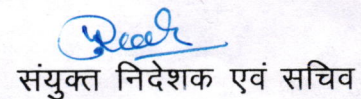 संयुक्त निदेशक एवं सचिव